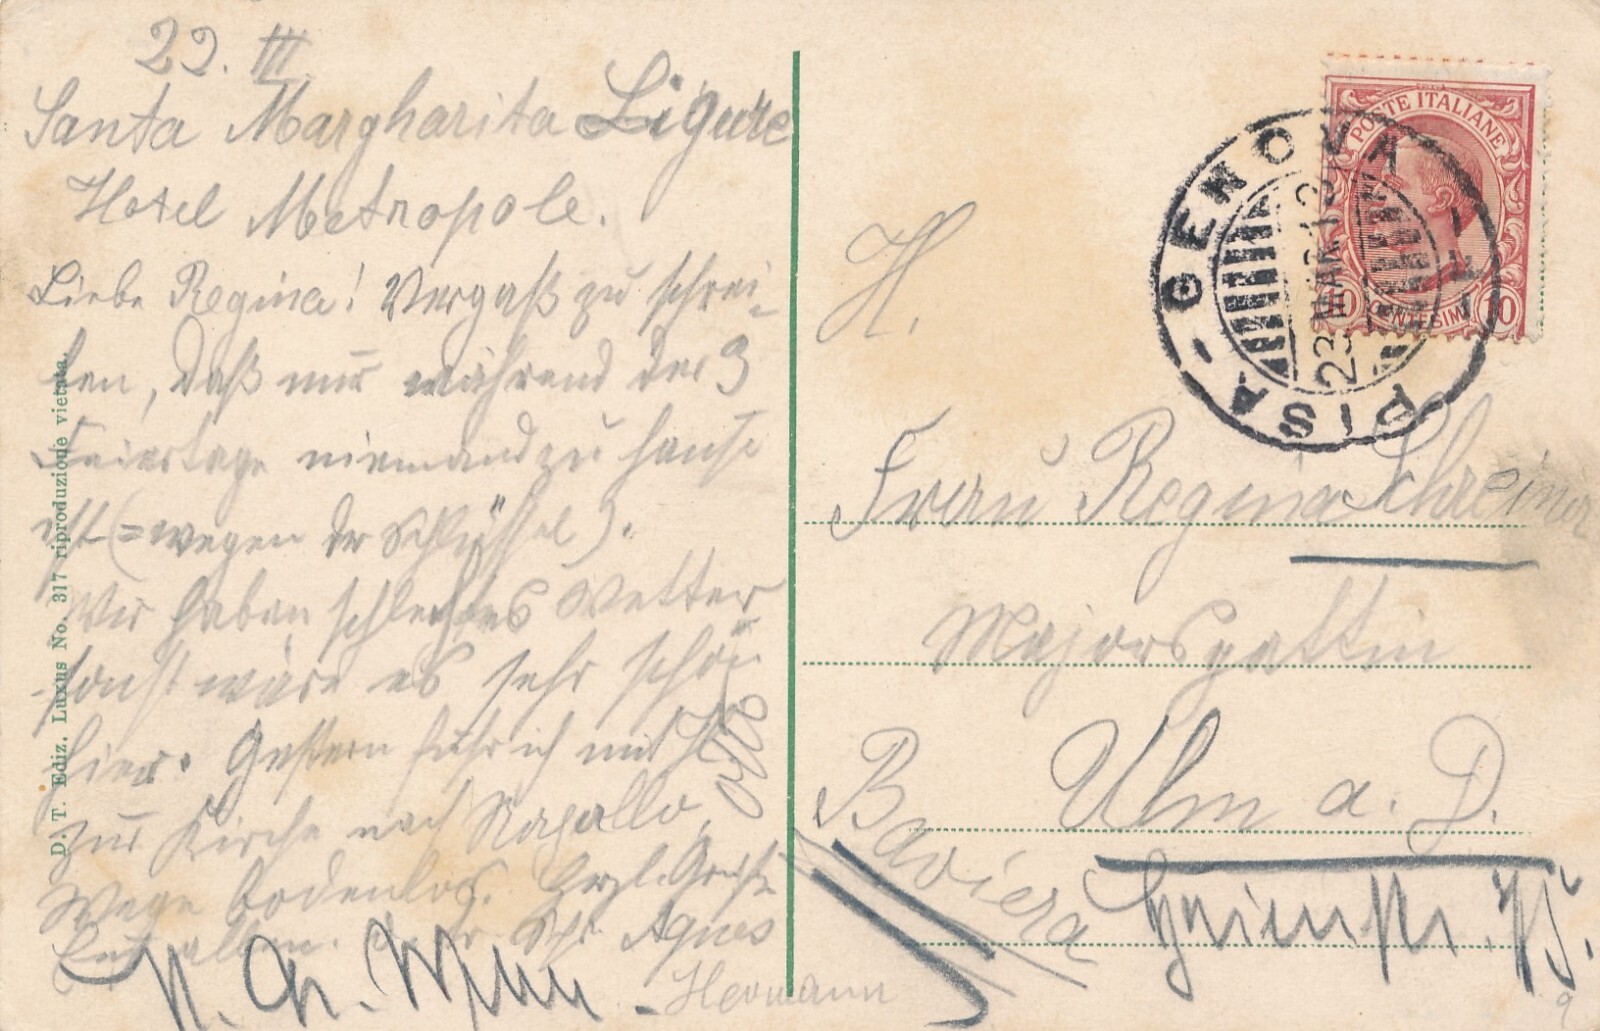 22. III
Santa Margharita Ligure
Hotel Metropole.
Liebe Regina! Vergaß zu schrei-
ben, daß nur während der 3
Feiertage niemand zu Hause
ist (= wegen der Schlüssel).
Wir haben schlechtes Wetter
sonst wäre es sehr schön
hier. Gestern fuhr ich mit
zur Kirche nach Rapallo,
Wege bodenlos. Herzl. Grüße
Euch allen. Agnes
Hermann
D. T. Ediz. Luxus No. 317 riproduzione vietata.
POSTE ITALIANE
10 CENTESIMI 10
GENOVA
PISA
23 MAR 13
H.
Frau Regina Schreiner
Majorsgattin
Ulm a. D.
Baviera